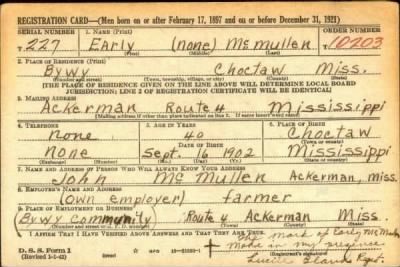 REGISTRATION CARD—(Men born on or after February 17, 1897 and on or before December 31, 1921)
SERIAL NUMBER 1. NAME (Print) ORDER NUMBER
T 227 Early (none) McMullen 10203
(First) (Middle) (Last)
2. PLACE OF RESIDENCE (Print)
Bywy Choctaw Miss.
(Town, township, village, or city) (County) (State)
[THE PLACE OF RESIDENCE GIVEN ON THE LINE ABOVE WILL DETERMINE LOCAL BOARD
JURISDICTION; LINE 2 OF REGISTRATION CERTIFICATE WILL BE IDENTICAL]
3. MAILING ADDRESS
Ackerman Route 4 Mississippi
[Mailing address if other than place indicated on line 2. If same insert word same]
4. TELEPHONE 5. AGE IN YEARS 6. PLACE OF BIRTH
none 40 Choctaw
DATE OF BIRTH (Town or county)
None Sept. 16 1902 Mississippi
(Exchange) (Number) (Mo.) (Day) (Yr.) (State or country)
7. NAME AND ADDRESS OF PERSON WHO WILL ALWAYS KNOW YOUR ADDRESS
John McMullen Ackerman, Miss.
8. EMPLOYER'S NAME AND ADDRESS
(Own employer) farmer
9. PLACE OF EMPLOYMENT OR BUSINESS
(Bywy community) Route 4 Ackerman Miss.
(Number and street or R. F. D. number) (Town) (County) (State)
I AFFIRM THAT I HAVE VERIFIED ABOVE ANSWERS AND THAT THEY ARE TRUE.
The mark of Early McMullen
D. S. S. Form 1 + made in my presence
(Revised 1-1-42) (over) (Registrant's signature)
Lucille Rgst.